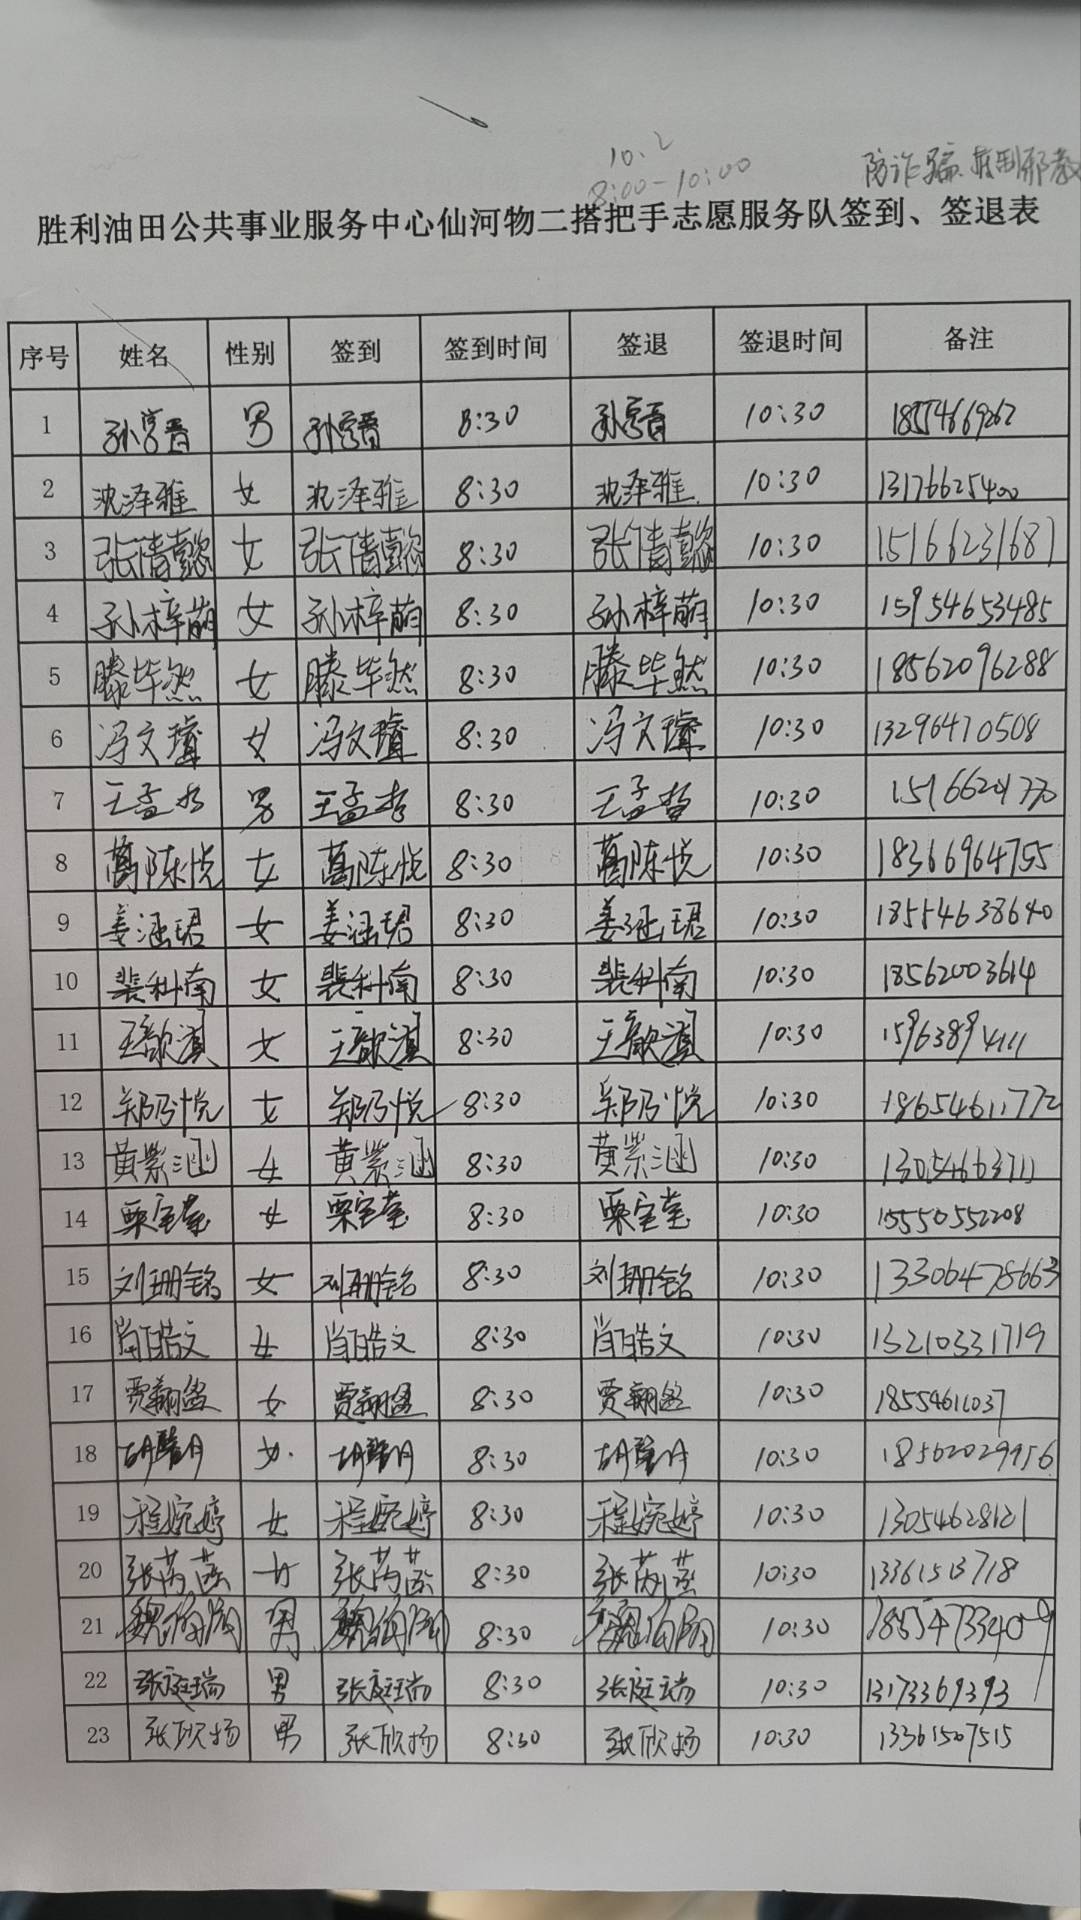 10.2
8:00-10:00
防诈骗.抵制邪教
胜利油田公共事业服务中心仙河物二搭把手志愿服务队签到、签退表
序号 姓名 性别 签到 签到时间 签退 签退时间 备注
1 男 8:30 10:30 18554669262
2 沈泽雅 女 沈泽雅 8:30 沈泽雅 10:30 13176625400
3 张倩懿 女 张倩懿 8:30 张倩懿 10:30 15166231687
4 孙梓萌 女 孙梓萌 8:30 孙梓萌 10:30 15954653485
5 滕毕然 女 滕毕然 8:30 滕毕然 10:30 18562096288
6 冯文 女 冯文 8:30 冯文 10:30 13296470508
7 王孟哲 男 王孟哲 8:30 王孟哲 10:30
8 葛陈悦 女 葛陈悦 8:30 葛陈悦 10:30 18366964755
9 姜涵珺 女 姜涵珺 8:30 姜涵珺 10:30 18554638640
10 裴科南 女 裴科南 8:30 裴科南 10:30 18562003614
11 王歆淇 女 王歆淇 8:30 王歆淇 10:30 15963894111
12 郑乃悦 女 郑乃悦 8:30 郑乃悦 10:30 18654611772
13 黄紫涵 女 黄紫涵 8:30 黄紫涵 10:30 13054663711
14 栗宝莹 女 栗宝莹 8:30 栗宝莹 10:30 15550552208
15 刘珊铭 女 刘珊铭 8:30 刘珊铭 10:30 13306478663
16 肖皓文 女 肖皓文 8:30 肖皓文 10:30 13210331719
17 贾翔盈 女 贾翔盈 8:30 贾翔盈 10:30 18554611037
18 女 8:30 10:30 18562029956
19 程婉婷 女 程婉婷 8:30 程婉婷 10:30 13054628121
20 张芮菡 女 张芮菡 8:30 张芮菡 10:30 13361513718
21 男 8:30 10:30 18554733409
22 张庭瑞 男 张庭瑞 8:30 张庭瑞 10:30 13173369393
23 张欣扬 男 张欣扬 8:30 张欣扬 10:30 13361507515